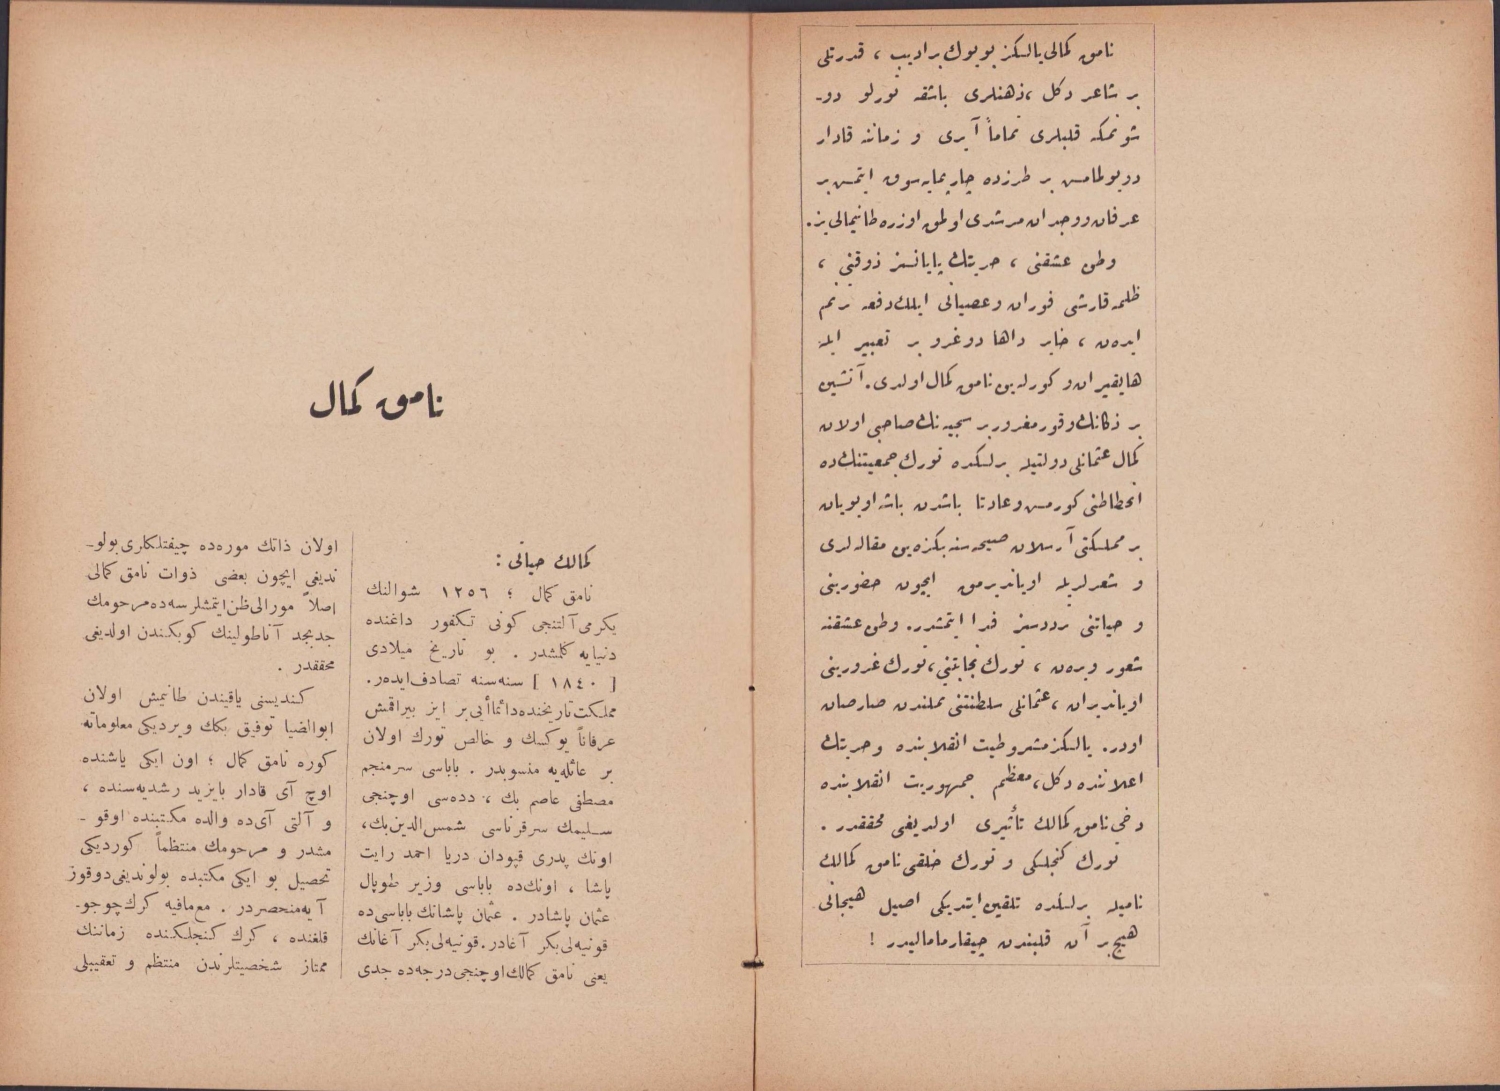 نامق كمالی يالكز بويوك بر اديب ، قدرتلی
بر شاعر دكل ، ذهنلری باشقه تورلو دو-
شونمكه قلبلری تماماً آيری و زماننه قادار
دويولمامش بر طرزده چارپمايه سوق ايتمش بر
عرفان و وجدان مرشدی اولمق اوزره طانيمالی يز.
وطن عشقنی ، حريتك پايانسز ذوقنی ،
ظلمه قارشی فوران و عصيانی ايلك دفعه ترنم
ايدەن ، خاير داها دوغرو بر تعبير ايله
هايقيران و كورلەين نامق كمال اولدی. آتشين
بر ذكانك وقور مغرور بر سجيه نك صاحبی اولان
كمال عثمانلی دولتيله برلكده تورك جمعيتنك ده
انحطاطنی كورمش و عادتا باشدن باشه اويويان
بر مملكتی آرسلان صيحه سنه بكزەين مقاله لری
و شعرلريله اوياندیرمق ايچون حضورينی
و حياتنی ترددسز فدا ايتمشدر. وطن عشقنه
شعور ويرەن ، تورك نجابتنی ، تورك غرورينی
اوياندیران ، عثمانلی سلطنتنی تملندن صارصان
اودر. يالكز مشروطيت انقلابنده و حريتك
اعلاننده دكل ، معظم جمهوريت انقلابنده
دخی نامق كمالك تأثيری اولديغی محققدر .
تورك كنجلكی و تورك خلقی نامق كمالك
ناميله برلكده تلقين ايتديكی اصيل هيجانی
هيچ بر آن قلبندن چيقارمامالیدر !
نامق كمال
كمالك حياتی :
نامق كمال ؛ ١٢٥٦ شوالنك
يكرمی آلتنجی كونی تكفور داغنده
دنيايه كلمشدر . بو تاريخ ميلادی
[ ١٨٤٠ ] سنه سنه تصادف ايدەر.
مملكت تاريخنده دائما أيی بر ايز بيراقمش
عرفاناً يوكسك و خالص تورك اولان
بر عائله يه منسوبدر . باباسی سرمنجم
مصطفی عاصم بك ، دده سی اوچنجی
سليمك سرقرناسی شمس الدين بك،
اونك پدری قپودان دريا احمد راتب
پاشا ، اونك ده باباسی وزير طوپال
عثمان پاشادر . عثمان پاشانك باباسی ده
قونيه لی بكر آغادر. قونيه لی بكر آغانك
يعنی نامق كمالك اوچنجی درجه ده جدی
اولان ذاتك موره ده چيفتلكلری بولو-
نديغی ايچون بعضی ذوات نامق كمالی
اصلاً مورالی ظن ايتمشلرسه ده مرحومك
جدبجد آناطولينك كوبكندن اولديغی
محققدر .
كنديسنی ياقيندن طانيمش اولان
ابوالضيا توفيق بكك ويرديكی معلوماته
كوره نامق كمال ؛ اون ايكی ياشنده
اوچ آی قادار بايزيد رشديه سنده ،
و آلتی آی ده والده مكتبنده اوقو -
مشدر و مرحومك منتظماً كورديكی
تحصيل بو ايكی مكتبده بولونديغی دوقوز
آيه منحصردر . مع مافيه كرك چوجو-
قلغنده ، كرك كنجلكنده زماننك
ممتاز شخصيتلرندن منتظم و تعقيبلی